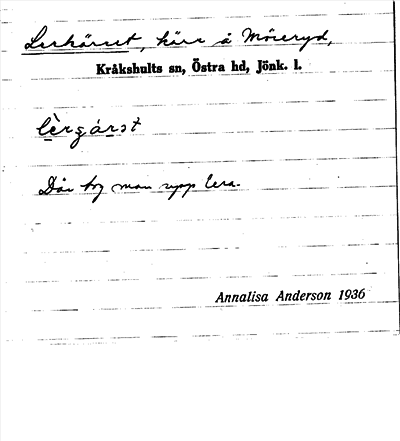 Lerkärret, kärr å Möseryd,
Kråkshults sn, Östra hd, Jönk. l.
Där tog man upp lera.
Annalisa Anderson 1936